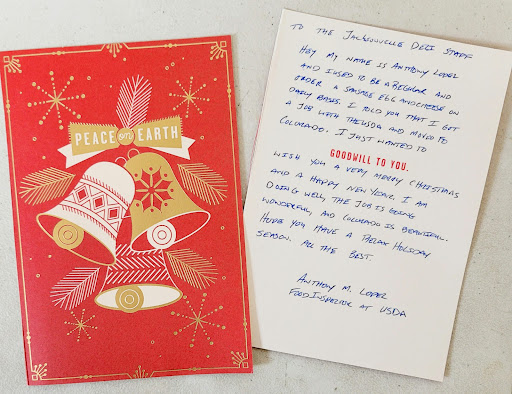 PEACE on EARTH
TO THE JACKSONVILLE DELI STAFF
HEY MY NAME IS ANTHONY LOPEZ
AND I USED TO BE A REGULAR AND
ORDER A SAUSAGE EGG AND CHEESE ON
DAILY BASIS. I TOLD YOU THAT I GET
A JOB WITH THE USDA AND MOVED TO
COLORADO. I JUST WANTED TO
GOODWILL TO YOU.
WISH YOU A VERY MERRY CHRISTMAS
AND A HAPPY NEW YEAR. I AM
DOING WELL, THE JOB IS GOING
WONDERFUL, AND COLORADO IS BEAUTIFUL.
HOPE YOU HAVE A HOLIDAY
SEASON. ALL THE BEST.
ANTHONY M. LOPEZ
FOOD INSPECTOR AT USDA